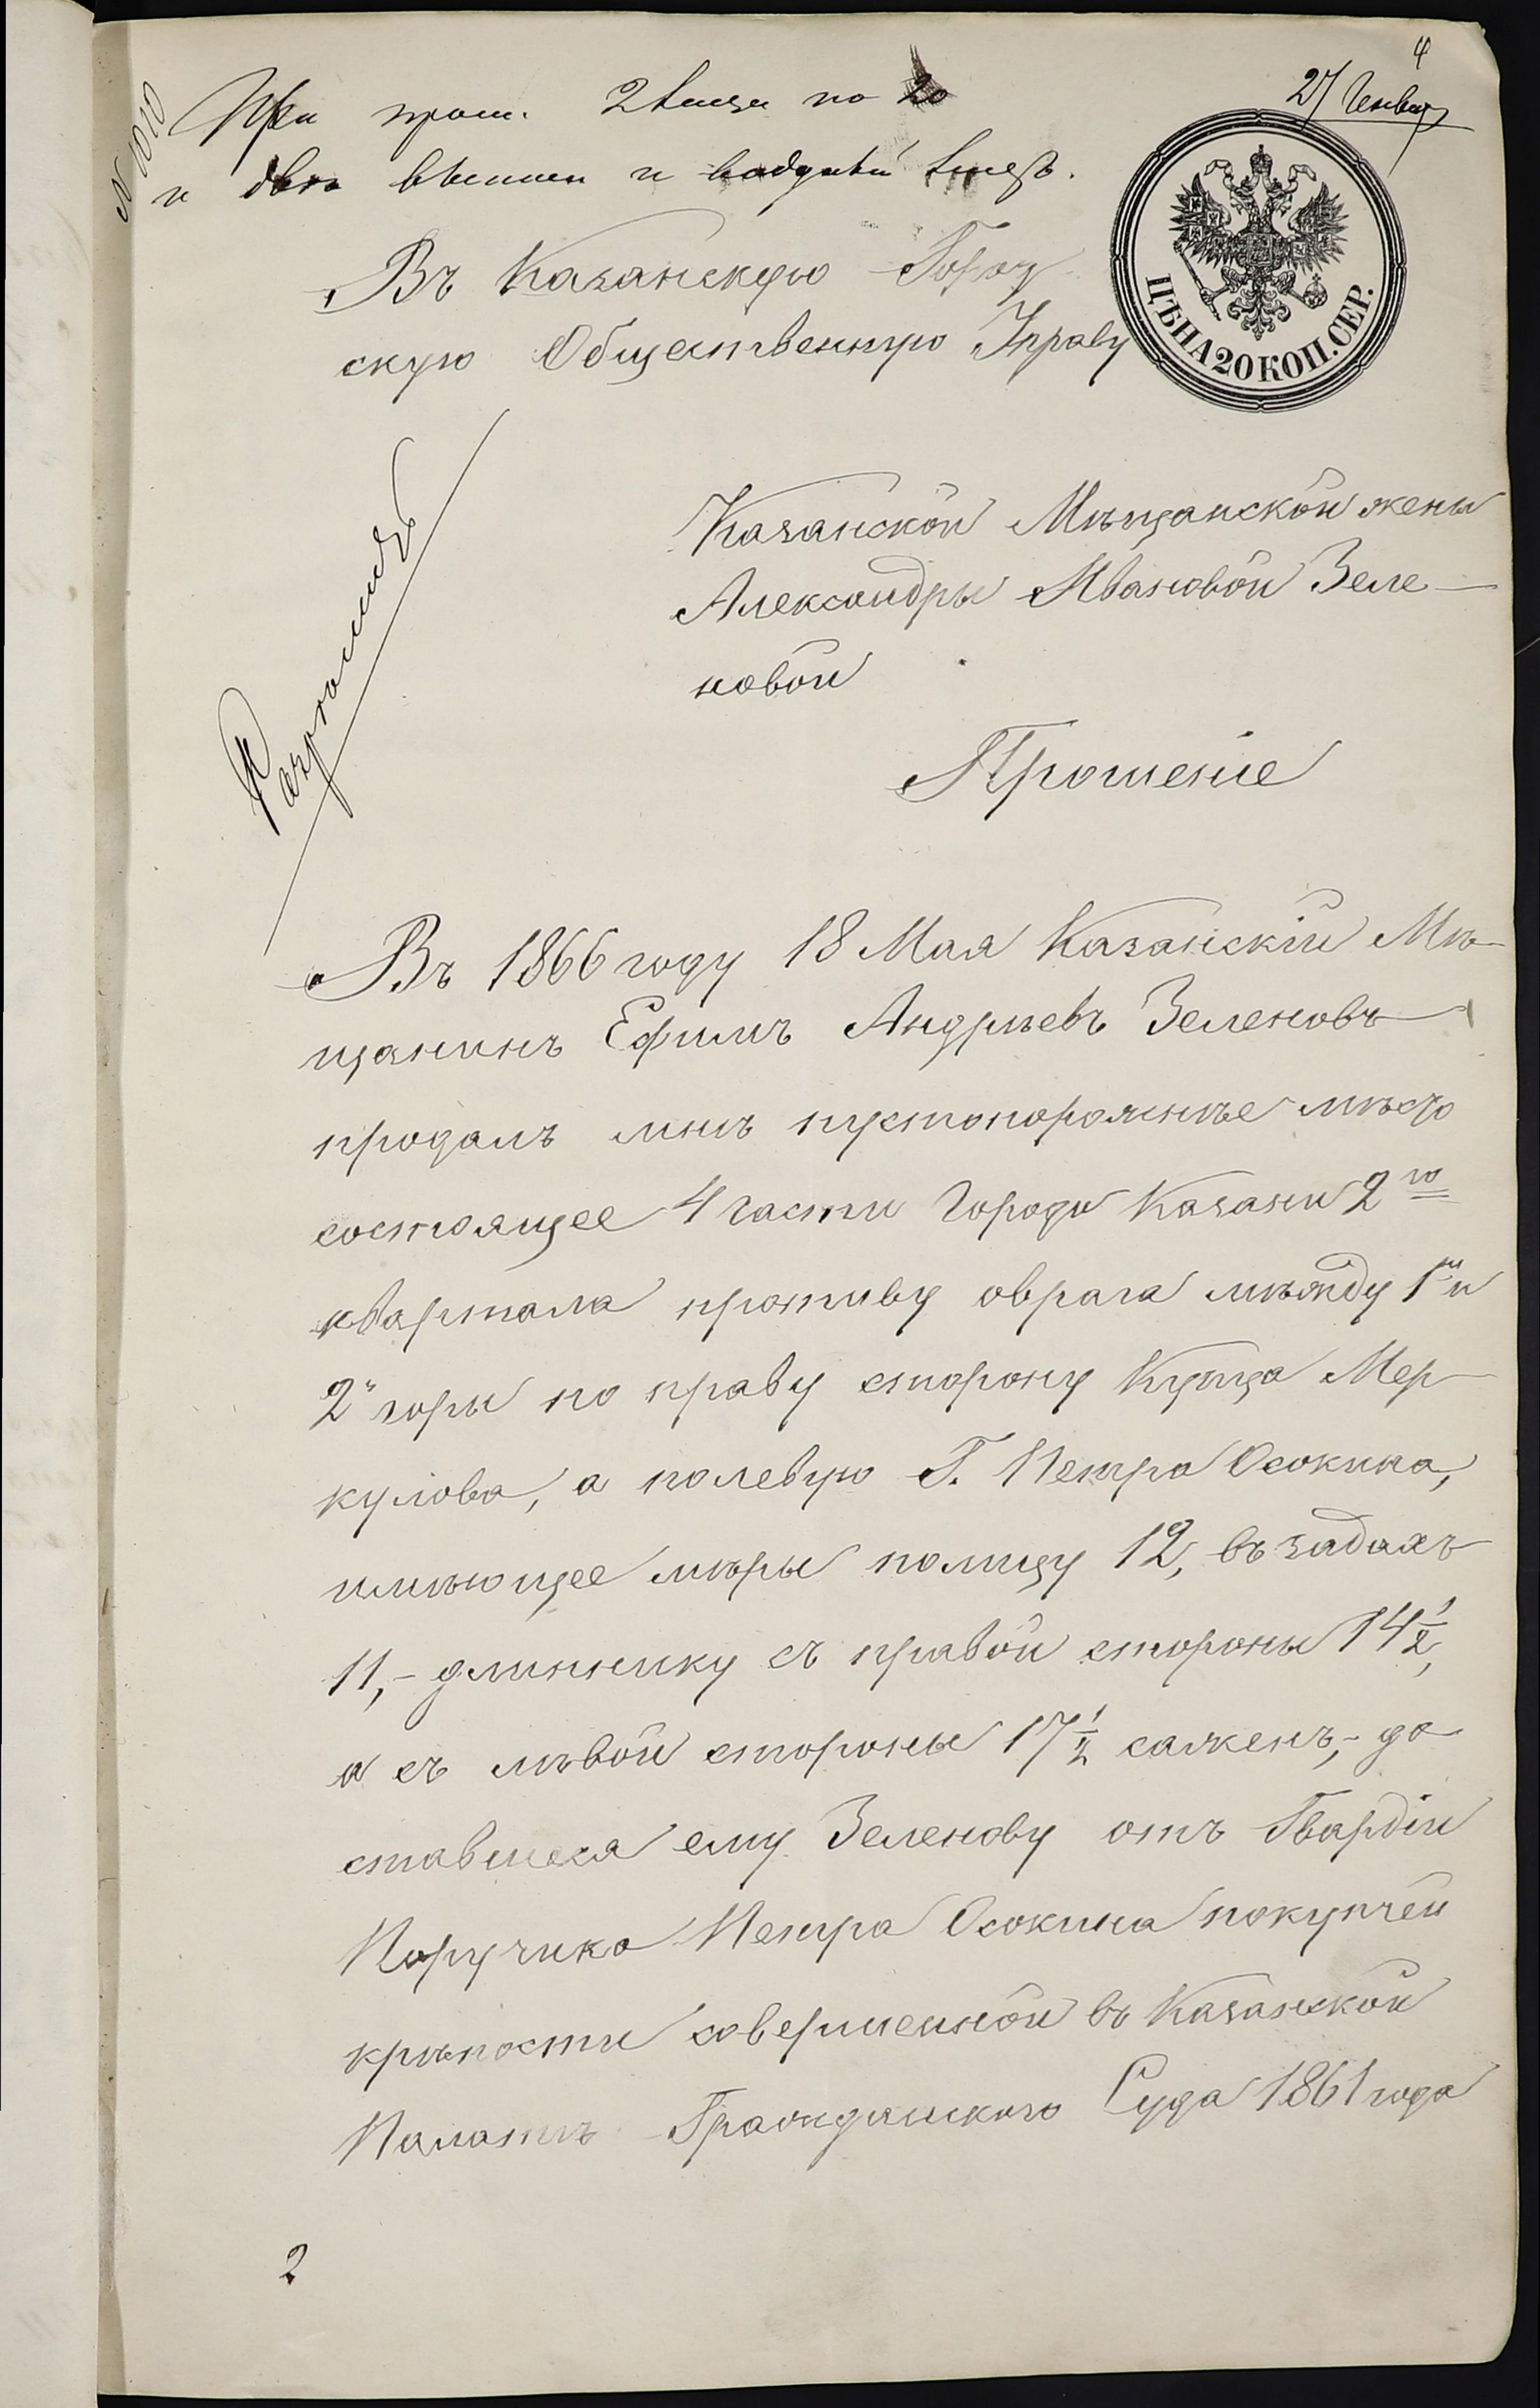 4
27 Генвар
№ 1010
При прош. 2 листа по 20
и
Въ Казанскую Город
скую Общественную Управу
ЦѢНА 20 КОП. СЕР.
Казанской Мѣщанской жены
Александры Ивановой Зеле-
новой
Прошеніе
Въ 1866 году 18 Мая Казанскій Мѣ-
щанинъ Ефимъ Андрѣевъ Зеленовъ
продалъ мнѣ пустопорожнѣе мѣсто
состоящее 4 части Города Казани 2го
квартала противу оврага мѣжду 1й и
2й горы по праву сторону Купца Мер-
кулова, а полевую Г. Петра Осокина,
имѣющее мѣры полицу 12, въ задахъ
11,- длиннику съ правой стороны 14 1/2,
а съ лѣвой стороны 17 1/2 саженъ,- до-
ставшеся ему Зеленову отъ Гвардіи
Поручика Петра Осокина покупчей
крѣпости совершенной въ Казанской
Палатѣ Гражданскаго Суда 1861 года
2